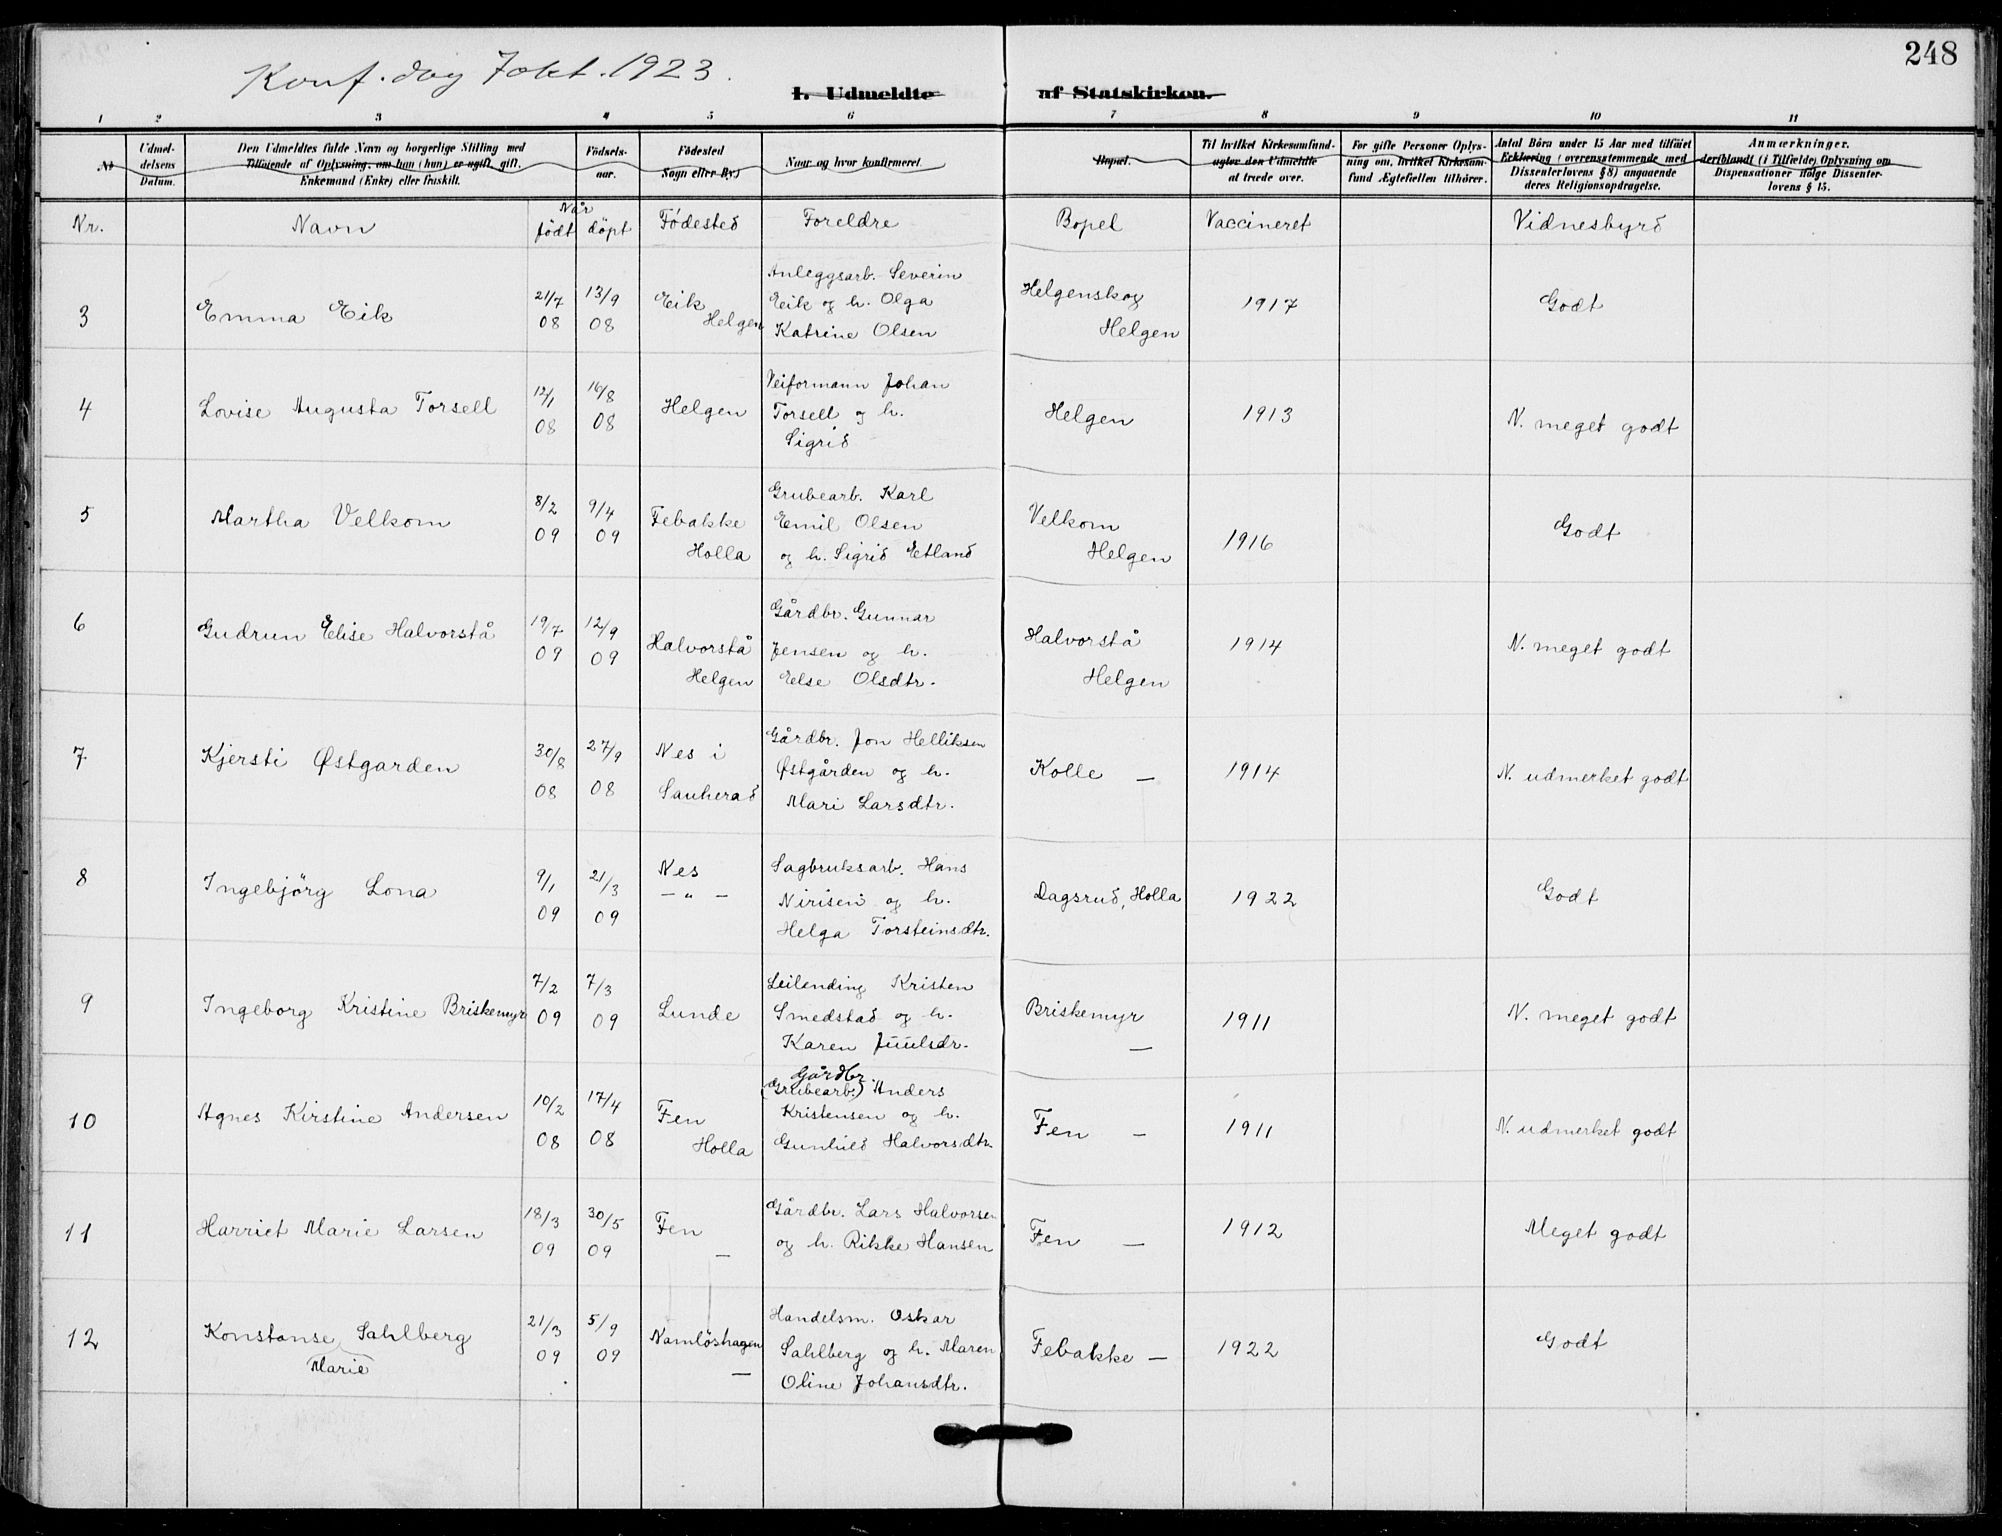 248
Konf. dag 7 okt. 1923.
1. Udmeldte af Statskirken.
1 2 3 4 5 6 7 8 9 10 11
№
Udmel-
delsens
Datum.
Den Udmeldtes fulde Navn og borgerlige Stilling med
Tilføiende af Oplysning, om han (hun) er ugift, gift,
Enkemand (Enke) eller fraskilt.
Fødsels-
aar.
Fødested
(Sogn eller By.)
Naar og hvor konfirmeret.
Bopæl.
Til hvilket Kirkesamfund-
agter den Udmeldte
at træde over.
For gifte Personer Oplys-
ning om, hvilket Kirkesam-
fund Ægtefællen tilhører.
Antal Børn under 15 Aar med tilføiet
Erklæring (overensstemmende med
Dissenterlovens § 8) angaaende
deres Religionsopdragelse.
Anmærkninger,
deriblandt (i Tilfælde) Oplysning om
Dispensationer ifølge Dissenter-
lovens § 15.
Nr. Navn Når
født döpt Födested Foreldre Bopel Vaccineret Vidnesbyrd
3 Emma Eik
21/7
08
13/9
08
Eik
Helgen
Anleggsarb. Severin
Eik og h. Olga
Katrine Olsen
Helgenskog
Helgen
1917
Godt
4 Lovise Augusta Torsell
12/1
08
16/8
08
Helgen
Veiformann Johan
Torsell og h.
Sigrid
Helgen
1913
N. meget godt
5 Martha Velkom
8/2
09
9/4
09
Febakke
Holla
Grubearb. Karl
Emil Olsen
og h. Sigrid Etland
Velkom
Helgen
1916
Godt
6 Gudrun Elise Halvorstå
19/7
09
12/9
09
Halvorstå
Helgen
Gårdbr. Gunnar
Jensen og h.
Else Olsdtr.
Halvorstå
Helgen
1914
N. meget godt
7 Kjersti Østgarden
30/8
08
27/9
08
Nes i
Sauherad
Gårdbr. Jon Helliksen
Østgården og h.
Mari Larsdtr.
Kolle —
1914
N. udmerket godt
8 Ingebjörg Lona
9/1
09
21/3
09
Nes
— " —
Sagbruksarb. Hans
Nirisen og h.
Helga Torsteinsdtr.
Dagsrud, Holla
1922
Godt
9 Ingeborg Kristine Briskemyr
7/2
09
7/3
09
Lunde
Leilending Kristen
Smedstad og h.
Karen Juulsdr.
Briskemyr
—
1911
N. meget godt
10 Agnes Kirstine Andersen
10/2
08
17/4
08
Fen
Holla
Gårdbr.
(Grubearb.) Anders
Kristensen og h.
Gunhild Halvorsdtr.
Fen —
1911
N. udmerket godt
11 Harriet Marie Larsen
18/3
09
30/5
09
Fen
—
Gårdbr. Lars Halvorsen
og h. Rikke Hansen
Fen —
1912
Meget godt
12 Konstanse Sahlberg
Marie
21/3
09
5/9
09
Namlöshagen
—
Handelsm. Oskar
Sahlberg og h. Maren
Oline Johansdtr.
Febakke —
1922
Godt